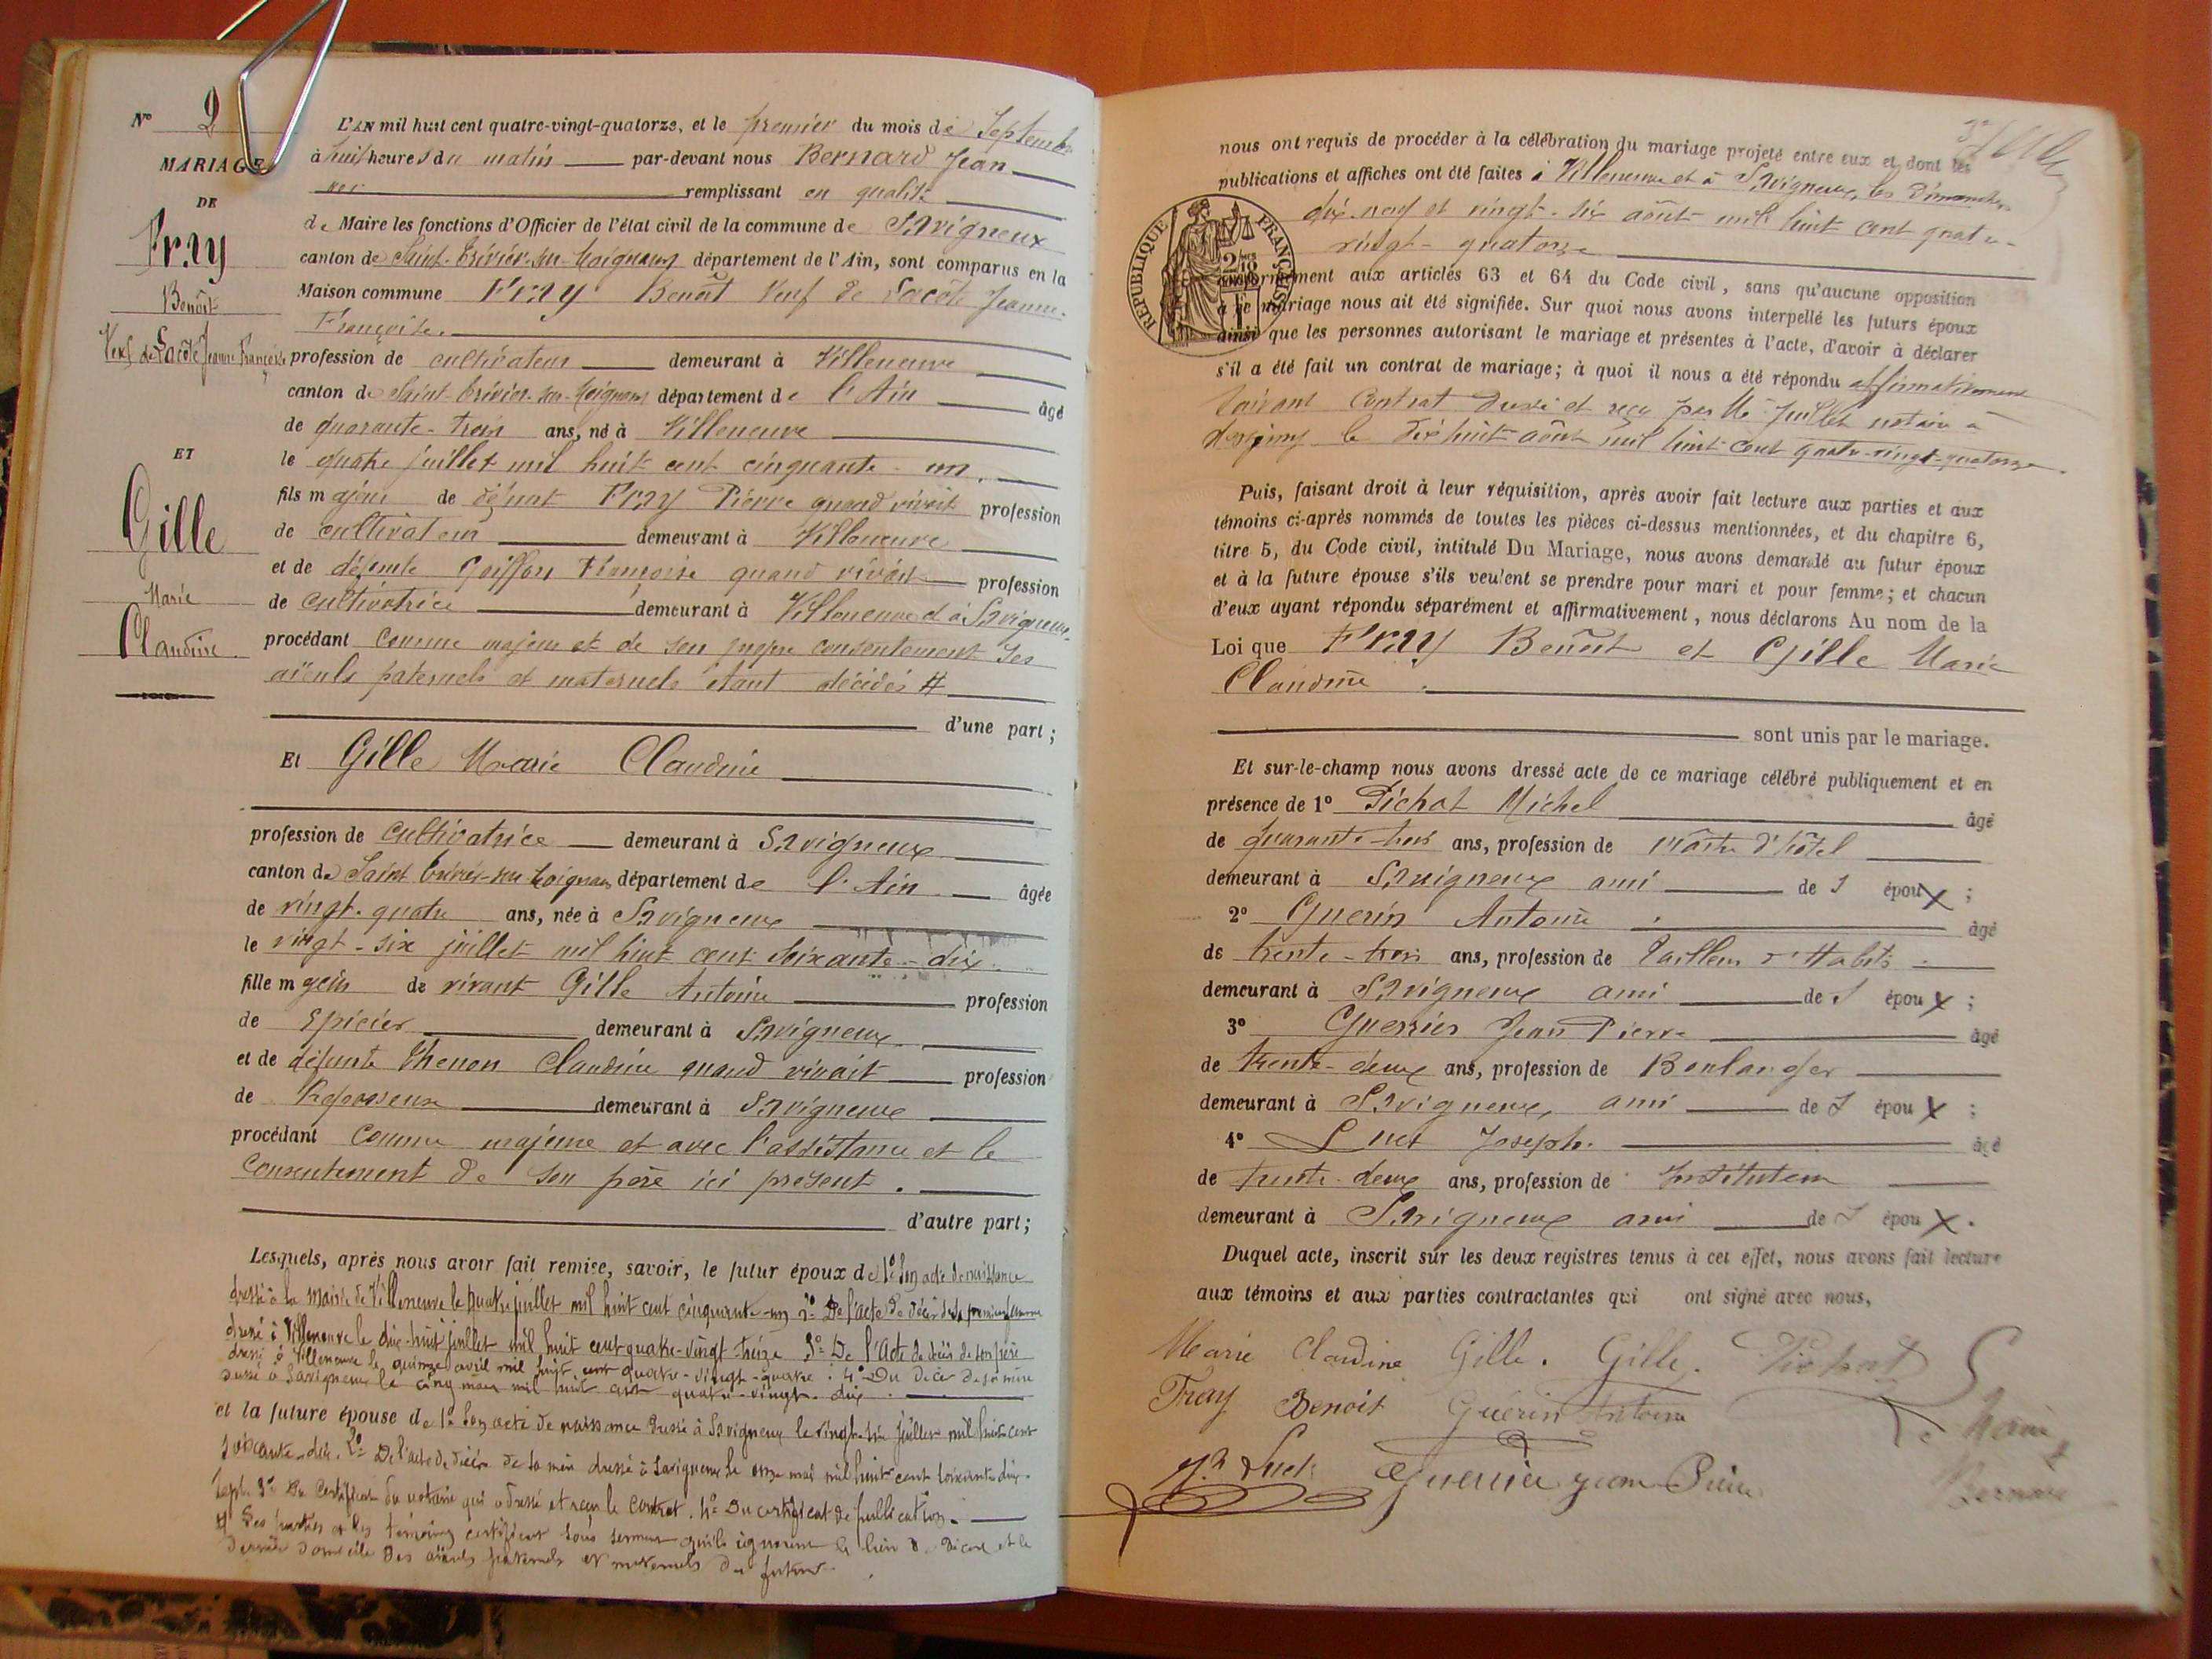 N° 9
MARIAGE
DE
Fray
Benoît
Veuf de Lacôte Jeanne Françoise
ET
Gille
Marie
Claudine
L'AN mil huit cent quatre-vingt-quatorze, et le premier du mois de Septembre
à huit heures du matin par-devant nous Bernard Jean
remplissant en qualité
de Maire les fonctions d'Officier de l'état civil de la commune de Savigneux
canton de Saint-Trivier-sur-Moignans département de l'Ain, sont comparus en la
Maison commune Fray Benoît Veuf de Lacôte Jeanne
Françoise.
profession de cultivateur demeurant à Villeneuve
canton de Saint-Trivier-sur-Moignans département de l'Ain âgé
de quarante-trois ans, né à Villeneuve
le quatre juillet mil huit cent cinquante-un,
fils majeur de défunt Fray Pierre quand vivait profession
de cultivateur demeurant à Villeneuve
et de défunte Goiffon Françoise quand vivait profession
de cultivatrice demeurant à Villeneuve et à Savigneux
procédant comme majeur et de son propre consentement ses
aïeuls paternels et maternels étant décédés #
d'une part;
Et Gille Marie Claudine
profession de cultivatrice demeurant à Savigneux
canton de Saint Trivier-sur-Moignans département de l'Ain âgée
de vingt-quatre ans, née à Savigneux
le vingt-six juillet mil huit cent soixante-dix
fille majeur de vivant Gille Antoine profession
de Epicier demeurant à Savigneux
et de défunte Thenon Claudine quand vivait profession
de Repasseuse demeurant à Savigneux
procédant comme majeure et avec l'assistance et le
consentement de son père ici présent.
d'autre part;
Lesquels, après nous avoir fait remise, savoir, le futur époux de 1° Son acte de naissance
dressé à la Mairie de Villeneuve le quatre juillet mil huit cent cinquante-un 2° De l'acte de décès de sa première femme
dressé à Villeneuve le dix-huit juillet mil huit cent quatre-vingt-treize 3° De l'acte de décès de son père
dressé à Villeneuve le quinze avril mil huit cent quatre-vingt-quatre : 4° Du décès de sa mère
dressé à Savigneux le cinq mars mil huit cent quatre-vingt-dix.
et la future épouse de 1° Son acte de naissance dressé à Savigneux le vingt-six juillet mil huit cent
soixante-dix. 2° De l'acte de décès de sa mère dressé à Savigneux le onze mai mil huit cent soixante-dix-
sept. 3° Du Certificat du notaire qui a dressé et reçu le Contrat. 4° Du certificat de publication.
# Les parties et les témoins certifient sous serment qu'ils ignorent le lieu de décès et le
dernier domicile des aïeuls paternels et maternels du futur.
nous ont requis de procéder à la célébration du mariage projeté entre eux et dont les
publications et affiches ont été faites à Villeneuve et à Savigneux, les Dimanches
dix-neuf et vingt-six août mil huit cent quatre-
vingt-quatorze
RÉPUBLIQUE FRANÇAISE
conformément aux articles 63 et 64 du Code civil, sans qu'aucune opposition
à ce mariage nous ait été signifiée. Sur quoi nous avons interpellé les futurs époux
ainsi que les personnes autorisant le mariage et présentes à l'acte, d'avoir à déclarer
s'il a été fait un contrat de mariage; à quoi il nous a été répondu affirmativement
Suivant Contrat dressé et reçu par Me Juillet notaire à
le dix huit août mil huit cent quatre-vingt-quatorze.
Puis, faisant droit à leur réquisition, après avoir fait lecture aux parties et aux
témoins ci-après nommés de toutes les pièces ci-dessus mentionnées, et du chapitre 6,
titre 5, du Code civil, intitulé Du Mariage, nous avons demandé au futur époux
et à la future épouse s'ils veulent se prendre pour mari et pour femme; et chacun
d'eux ayant répondu séparément et affirmativement, nous déclarons Au nom de la
Loi que Fray Benoît et Gille Marie
Claudine
sont unis par le mariage.
Et sur-le-champ nous avons dressé acte de ce mariage célébré publiquement et en
présence de 1° Pichat Michel âgé
de quarante-trois ans, profession de Maître d'hôtel
demeurant à Savigneux ami de S époux;
2° Guerin Antoine âgé
de trente-trois ans, profession de Tailleur d'Habits
demeurant à Savigneux ami de S époux;
3° Guerrier Jean Pierre âgé
de trente-deux ans, profession de Boulanger
demeurant à Savigneux, ami de S époux;
4° Luct Joseph. âgé
de trente-deux ans, profession de Instituteur
demeurant à Savigneux ami de S époux.
Duquel acte, inscrit sur les deux registres tenus à cet effet, nous avons fait lecture
aux témoins et aux parties contractantes qui ont signé avec nous,
Marie Claudine Gille. Gille. Pichat
Fray Benoit Guerin Antoine
Le Maire
Luct Guerrier jean Pierre
Bernard